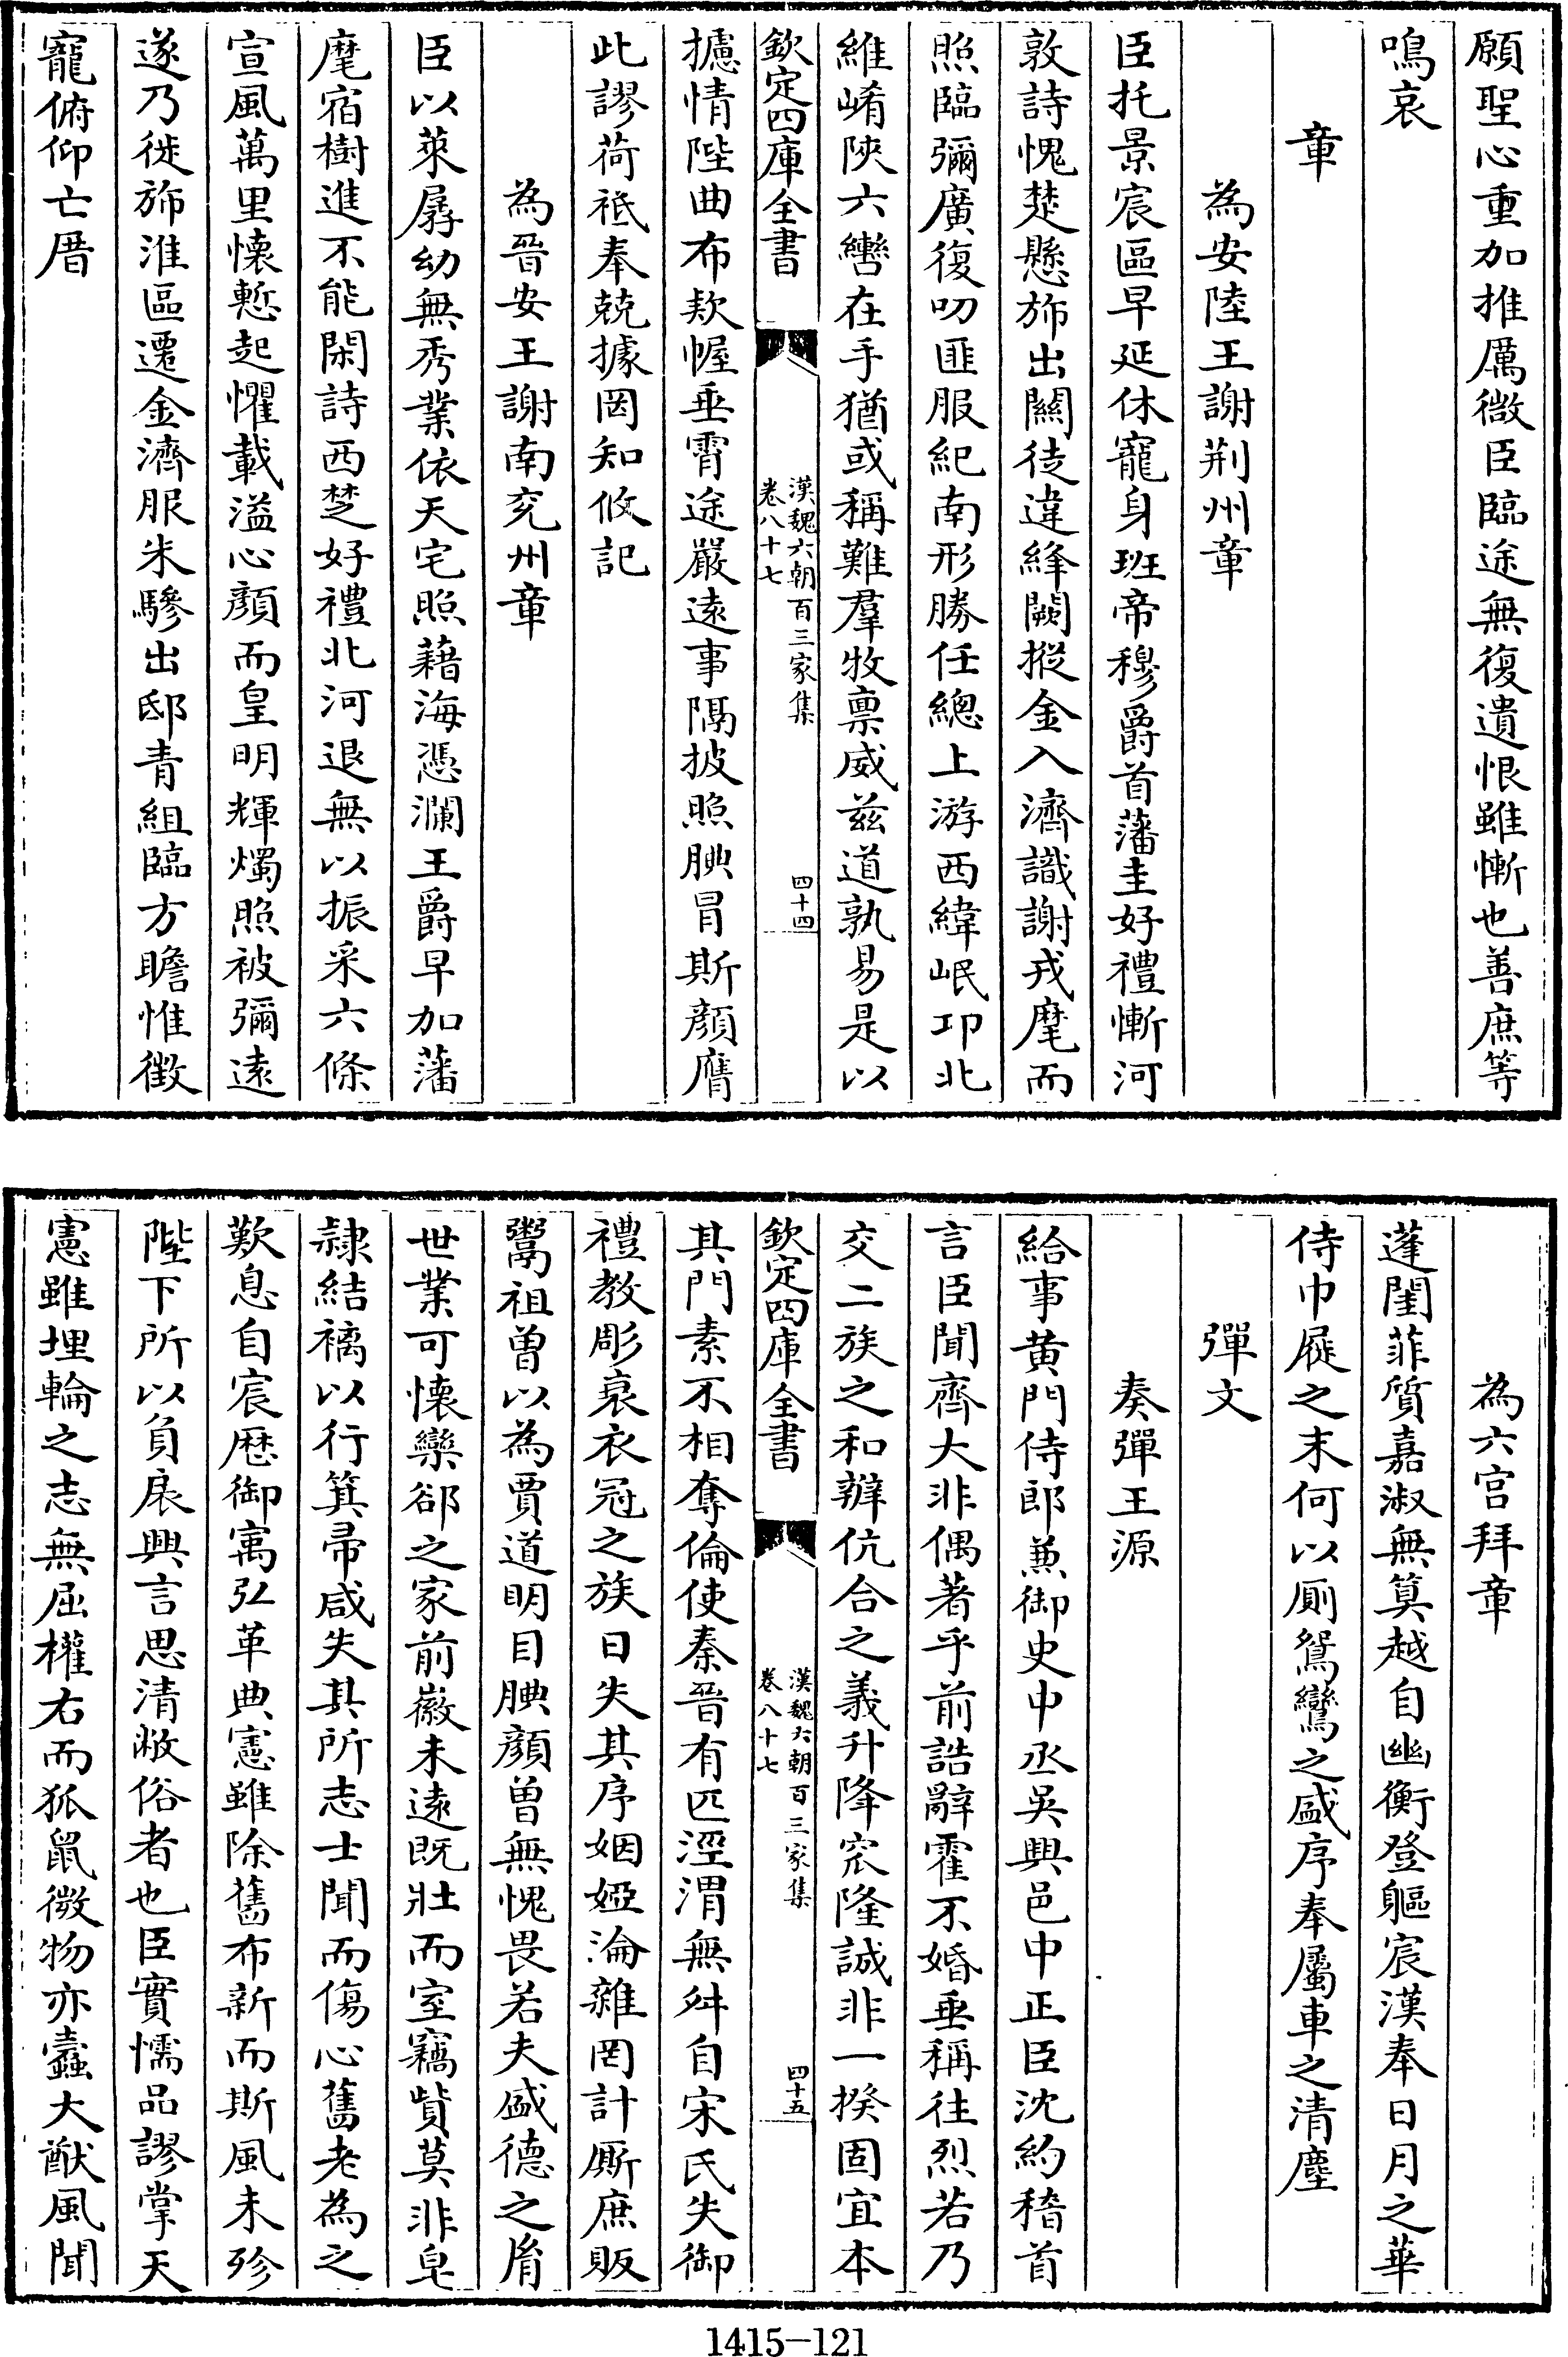 願聖心重加推厲微臣臨途無復遺恨雖慚也善庶等
鳴哀
章
為安陸王謝荆州章
臣托景宸區早延休寵身班帝穆爵首藩圭好禮慚河
敦詩愧楚懸斾出關徒違絳闕摐金入濟識謝戎麾而
照臨彌廣復叨匪服紀南形勝任總上游西緯岷卭北
維崤陜六轡在手猶或稱難羣牧禀威兹道孰易是以
欽定四庫全書
漢魏六朝百三家集
卷八十七
四十四
攄情陛曲布欵幄垂霄途嚴逺事隔披照腆冒斯顔膺
此謬荷祗奉兢據罔知攸記
為晉安王謝南兖州章
臣以萊孱幼無秀業依天宅照藉海憑瀾王爵早加藩
麾宿樹進不能閑詩西楚好禮北河退無以振采六條
宣風萬里懐慙起懼載溢心顔而皇明輝燭照被彌逺
遂乃徙斾淮區遷金濟服朱驂出邸青組臨方瞻惟徴
寵俯仰亡厝
為六宫拜章
蓬閨菲質嘉淑無算越自幽衡登軀宸漢奉日月之華
侍巾屣之末何以厠鴛鸞之盛序奉屬車之清塵
彈文
奏彈王源
給事黄門侍郎兼御史中丞吳興邑中正臣沈約稽首
言臣聞齊大非偶著乎前誥辭霍不婚垂稱往烈若乃
交二族之和辨伉合之義升降窊隆誠非一揆固宜本
欽定四庫全書
漢魏六朝百三家集
卷八十七
四十五
其門素不相奪倫使秦晉有匹涇渭無舛自宋氏失御
禮教彫衰衣冠之族日失其序姻婭淪雜罔計厮庶販
鬻祖曽以為賈道明目腆顔曽無愧畏若夫盛德之胤
世業可懐欒郤之家前徽未逺既壯而室竊貲莫非皂
隷結褵以行箕帚咸失其所志士聞而傷心舊老為之
歎息自宸厯御寓弘革典憲雖除舊布新而斯風未殄
陛下所以負扆興言思清敝俗者也臣實懦品謬掌天
憲雖埋輪之志無屈權右而狐鼠微物亦蠹大猷風聞
1415-121